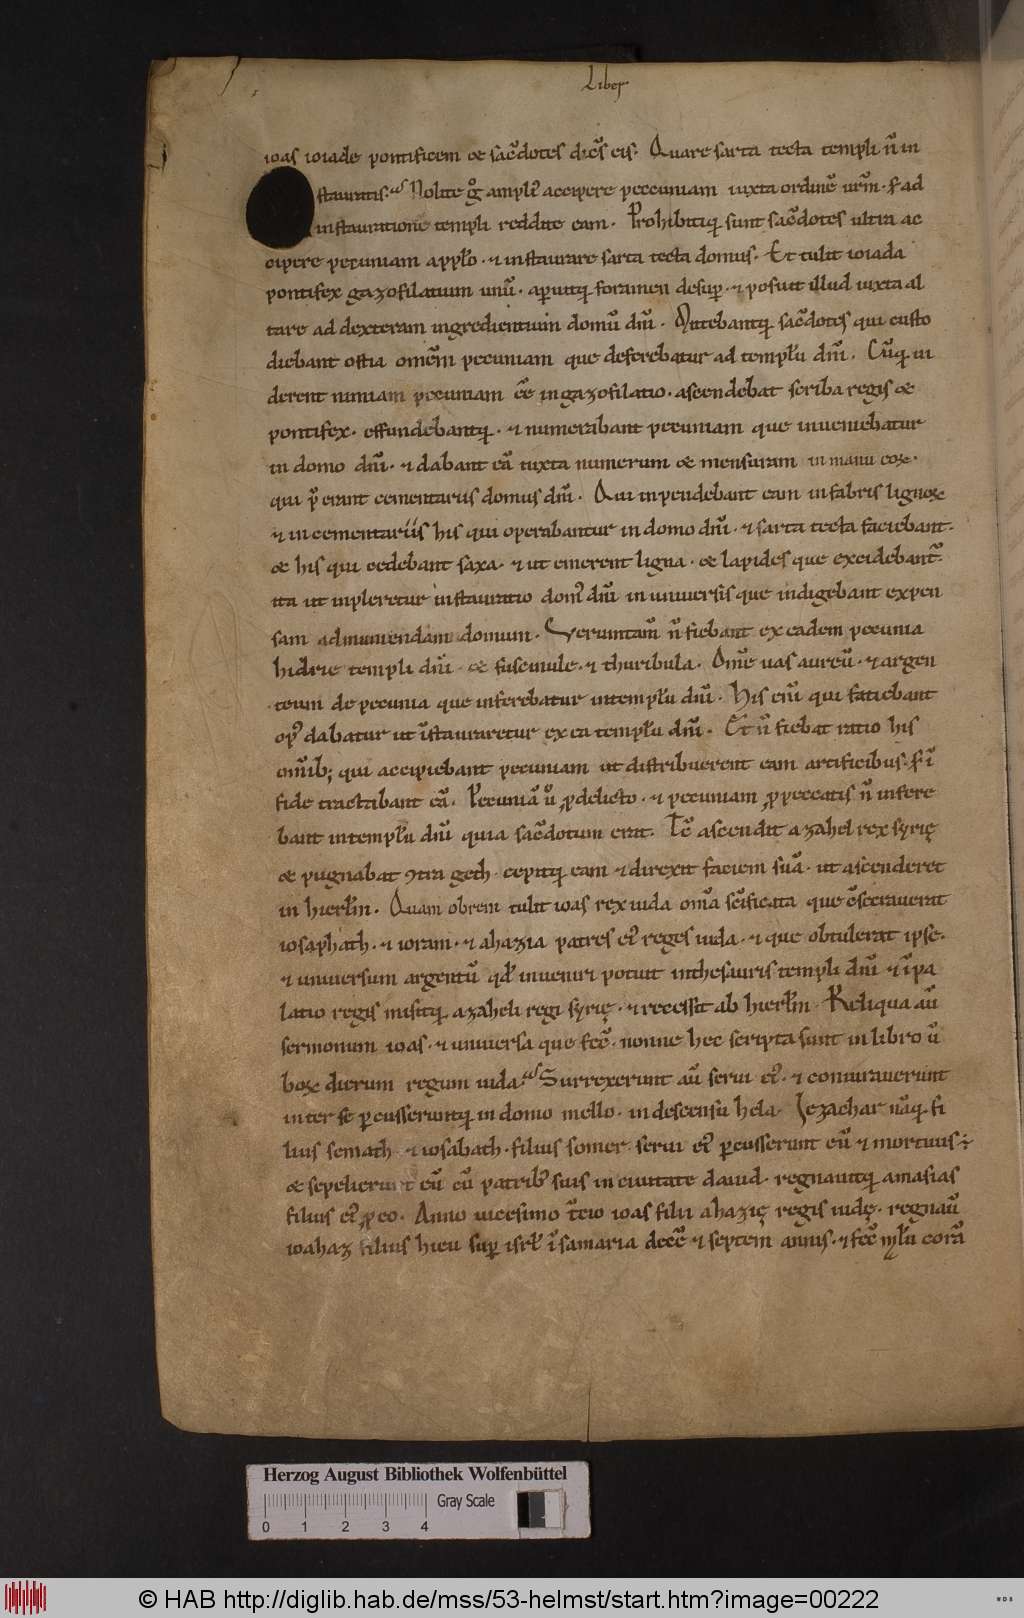 Liber
ioas ioiade pontificem & sac̄dotes dic̄s eis. Quare sarta tecta templi n̄ in
stauratis. Nolite gͦ ampliꝰ accipere pecuniam iuxta ordinē ur̄m. s; ad
instauratione templi reddite eam. Prohibitiq; sunt sac̄dotes ultra ac
cipere pecuniam a pp̄lo. ⁊ instaurare sarta tecta domus. Et tulit ioiada
pontifex gazofilatium unū. aꝑuitq; foramen desuꝑ. ⁊ posuit illud iuxta al
tare ad dexteram ingredientium domū dn̄i. Mittebantq; sac̄dotes qui custo
diebant ostia omēm pecuniam que deferebatur ad templū dn̄i. Cūq; ui
derent nimiam pecuniam ēē in gazofilatio. ascendebat scriba regis &
pontifex. effundebantq;. ⁊ numerabant pecuniam que inueniebatur
in domo dn̄i. ⁊ dabant eā iuxta numerum & mensuram in manu eoꝝ.
qui p̄erant cementariis domus dn̄i. Qui inpendebant eam in fabris lignoꝝ
⁊ in cementariis his qui operabantur in domo dn̄i. ⁊ sarta tecta faciebant.
& his qui cedebant saxa. ⁊ ut emerent ligna. & lapides que excidebant̄.
ita ut inpleretur instauratio domꝰ dn̄i in uniuersis que indigebant expen
sam ad muniendam domum. Veruntam̄ n̄ fiebant ex eadem pecunia
hidrie templi dn̄i. & fuscinule. ⁊ thuribula. Om̄e uas aureū. ⁊ argen
teum de pecunia que inferebatur in templū dn̄i. His eni̅ qui fatiebant
opꝰ dabatur ut i̅stauraretur ex ea templū dn̄i. Et n̄ fiebat ratio his
omīb; qui accipiebant pecuniam ut distribuerent eam artificibus. s; i̅
fide tractabant eā. Pecuniā u̅ ꝓ delicto. ⁊ pecuniam ꝓ peccatis n̄ infere
bant in templū dn̄i quia sac̄dotum erat. Tc̄ ascendit azahel rex syrię
& pugnabat ꝯtra geth. cepitq; eam ⁊ direxit faciem suā. ut ascenderet
in hierłm. Quam obrem tulit ioas rex iuda om̄a sc̄ificata que c̄secrauerat
iosaphath. ⁊ ioram. ⁊ ahazia patres eiꝰ reges iuda. ⁊ que obtulerat ipse.
⁊ uniuersum argentū qd̄ inueniri potuit in thesauris templi dn̄i ⁊ i̅ pa
latio regis misitq; azaheli regi syrię. ⁊ recessit ab hierłm. Reliqua au̅
sermonum ioas. ⁊ uniuersa que fēc̄. nonne hec scripta sunt in libro u̅
boꝝ dierum regum iuda. Surrexerunt au̅ serui eiꝰ. ⁊ coniurauerunt
inter se ꝑcusseruntq; in domo mello. in descensu hela. Iezachar nāq; fi
lius semath. ⁊ iosabath. filius somer. serui eiꝰ ꝑcusserunt eū ⁊ mortuus ÷
& sepelierunt eū cū patribꝰ suis in ciuitate dauid. regnauitq; amasias
filius eiꝰ ꝓ eo. Anno uicesimo t̄cio ioas filii ahazię regis iudę. regnau̅
ioahaz filius hieu suꝑ isrł i̅ samaria decē ⁊ septem annis. ⁊ fec̄ mł̄u corā
Herzog August Bibliothek Wolfenbüttel
Gray Scale
0 1 2 3 4
© HAB http://diglib.hab.de/mss/53-helmst/start.htm?image=00222